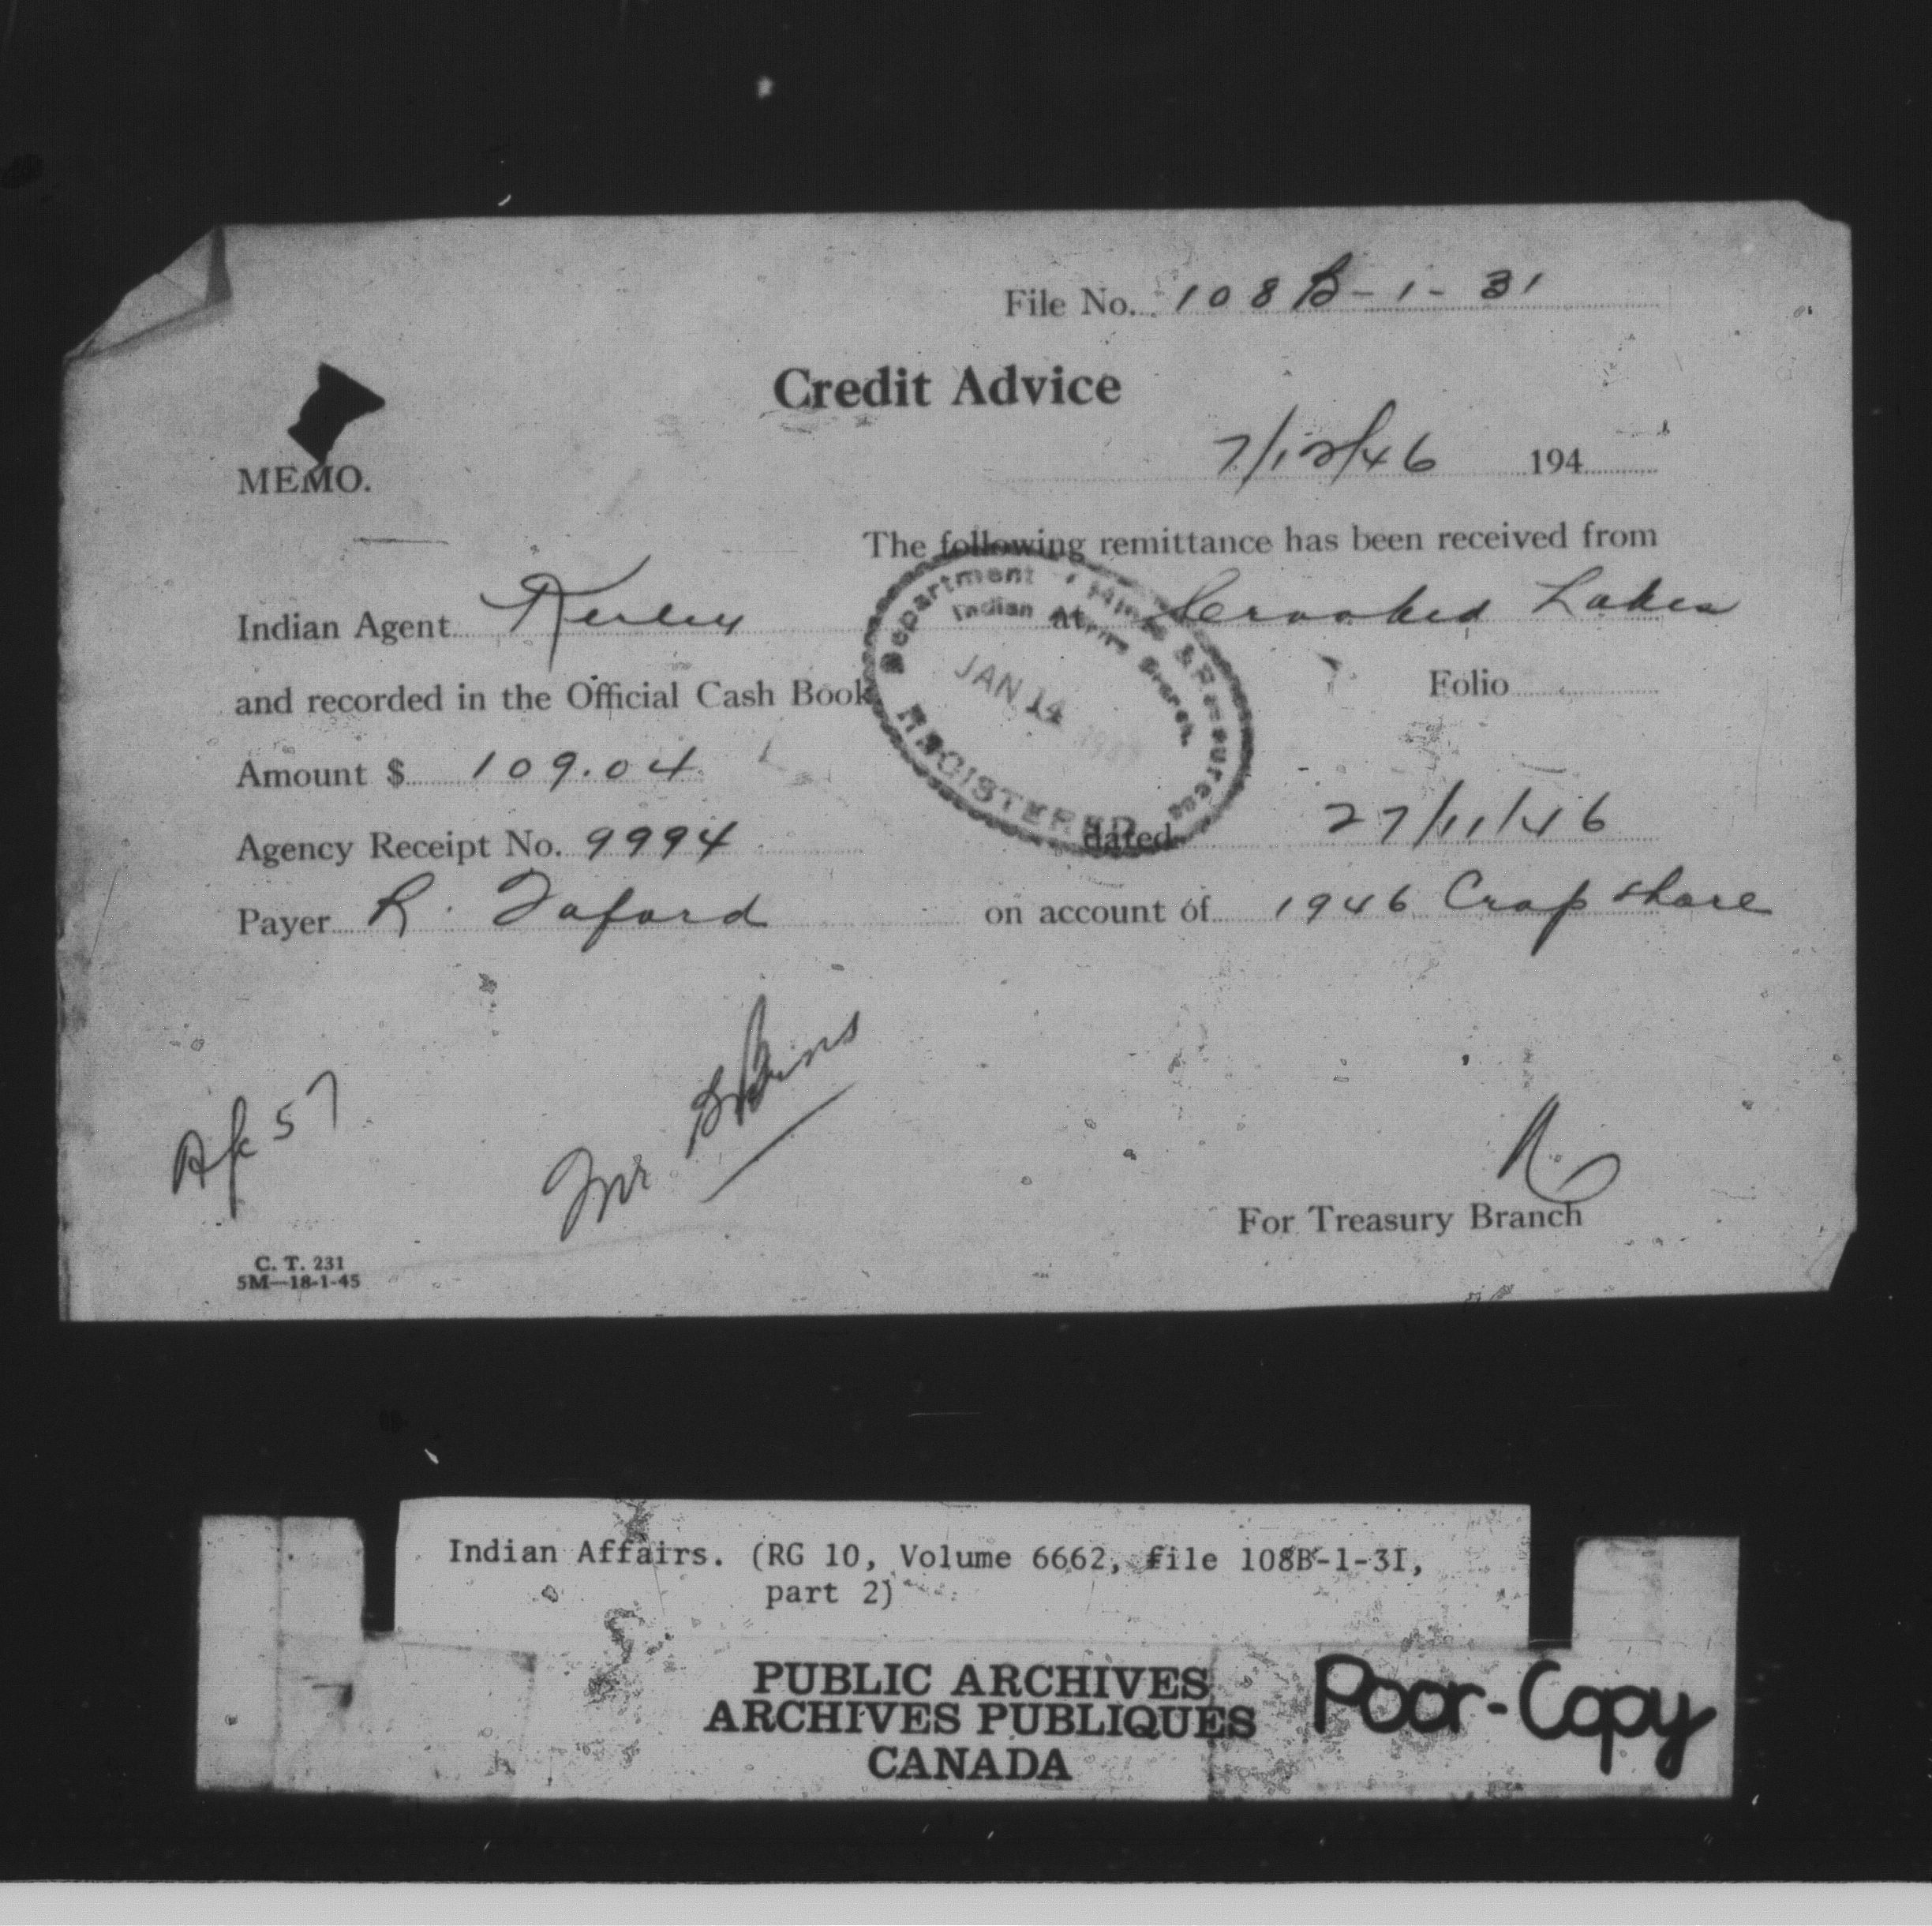 File No. 108 B-1-31
Credit Advice
7/12/46 194
MEMO.
The following remittance has been received from
Indian Agent Kerley at Crooked Lakes
and recorded in the Official Cash Book Folio
Amount $ 109.04
Agency Receipt No. 9994 dated 27/11/46
Payer R. on account of 1946 Crop share
Department of Mines & Resources
Indian Affairs Branch.
JAN 14
REGISTERED
57
Mr
For Treasury Branch
C. T. 231
5M—18-1-45
Indian Affairs. (RG 10, Volume 6662, file 108B-1-3I,
part 2)
PUBLIC ARCHIVES
ARCHIVES PUBLIQUES
CANADA
Poor-Copy